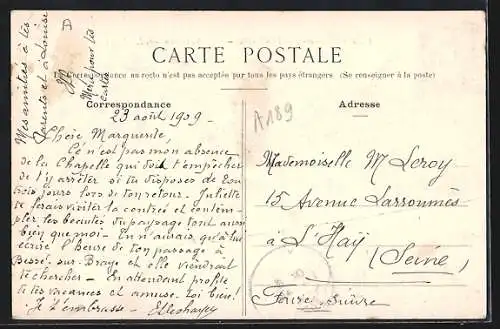 A
Mes amitiés à tes
parents et à Louise
Merci pour les
cartes
CARTE POSTALE
La Correspondance au recto n'est pas acceptée par tous les pays étrangers (Se renseigner à la poste)
Correspondance
23 août 1909 -
Chère Marguerite,
Ce n'est pas mon absence
de la Chapelle qui doit t'empêcher
de t'y arrêter si tu disposes de 2 ou
trois jours lors de ton retour. Juliette
te ferais visiter la contrée et contem-
pler les beautés du paysage tout aussi
bien que moi - Tu n'aurais qu'à lui
écrire l'heure de ton passage à
Bessé-sur-Braye et elle viendrait
te chercher - En attendant profite
de tes vacances et amuse-toi bien!
Je t'embrasse -
Adresse
A189
Mademoiselle M Leroy
15 Avenue Larroumès
à L'Haÿ
(Seine)
Faire suivre